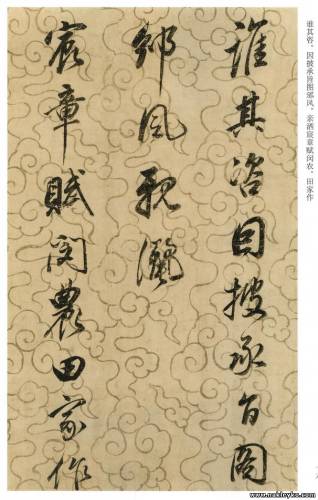 谁其咨。因披承旨图邠风，亲洒宸章赋闵农。田家作
誰其咨因披承旨圖
邠風親灑
宸章賦閔農田家作